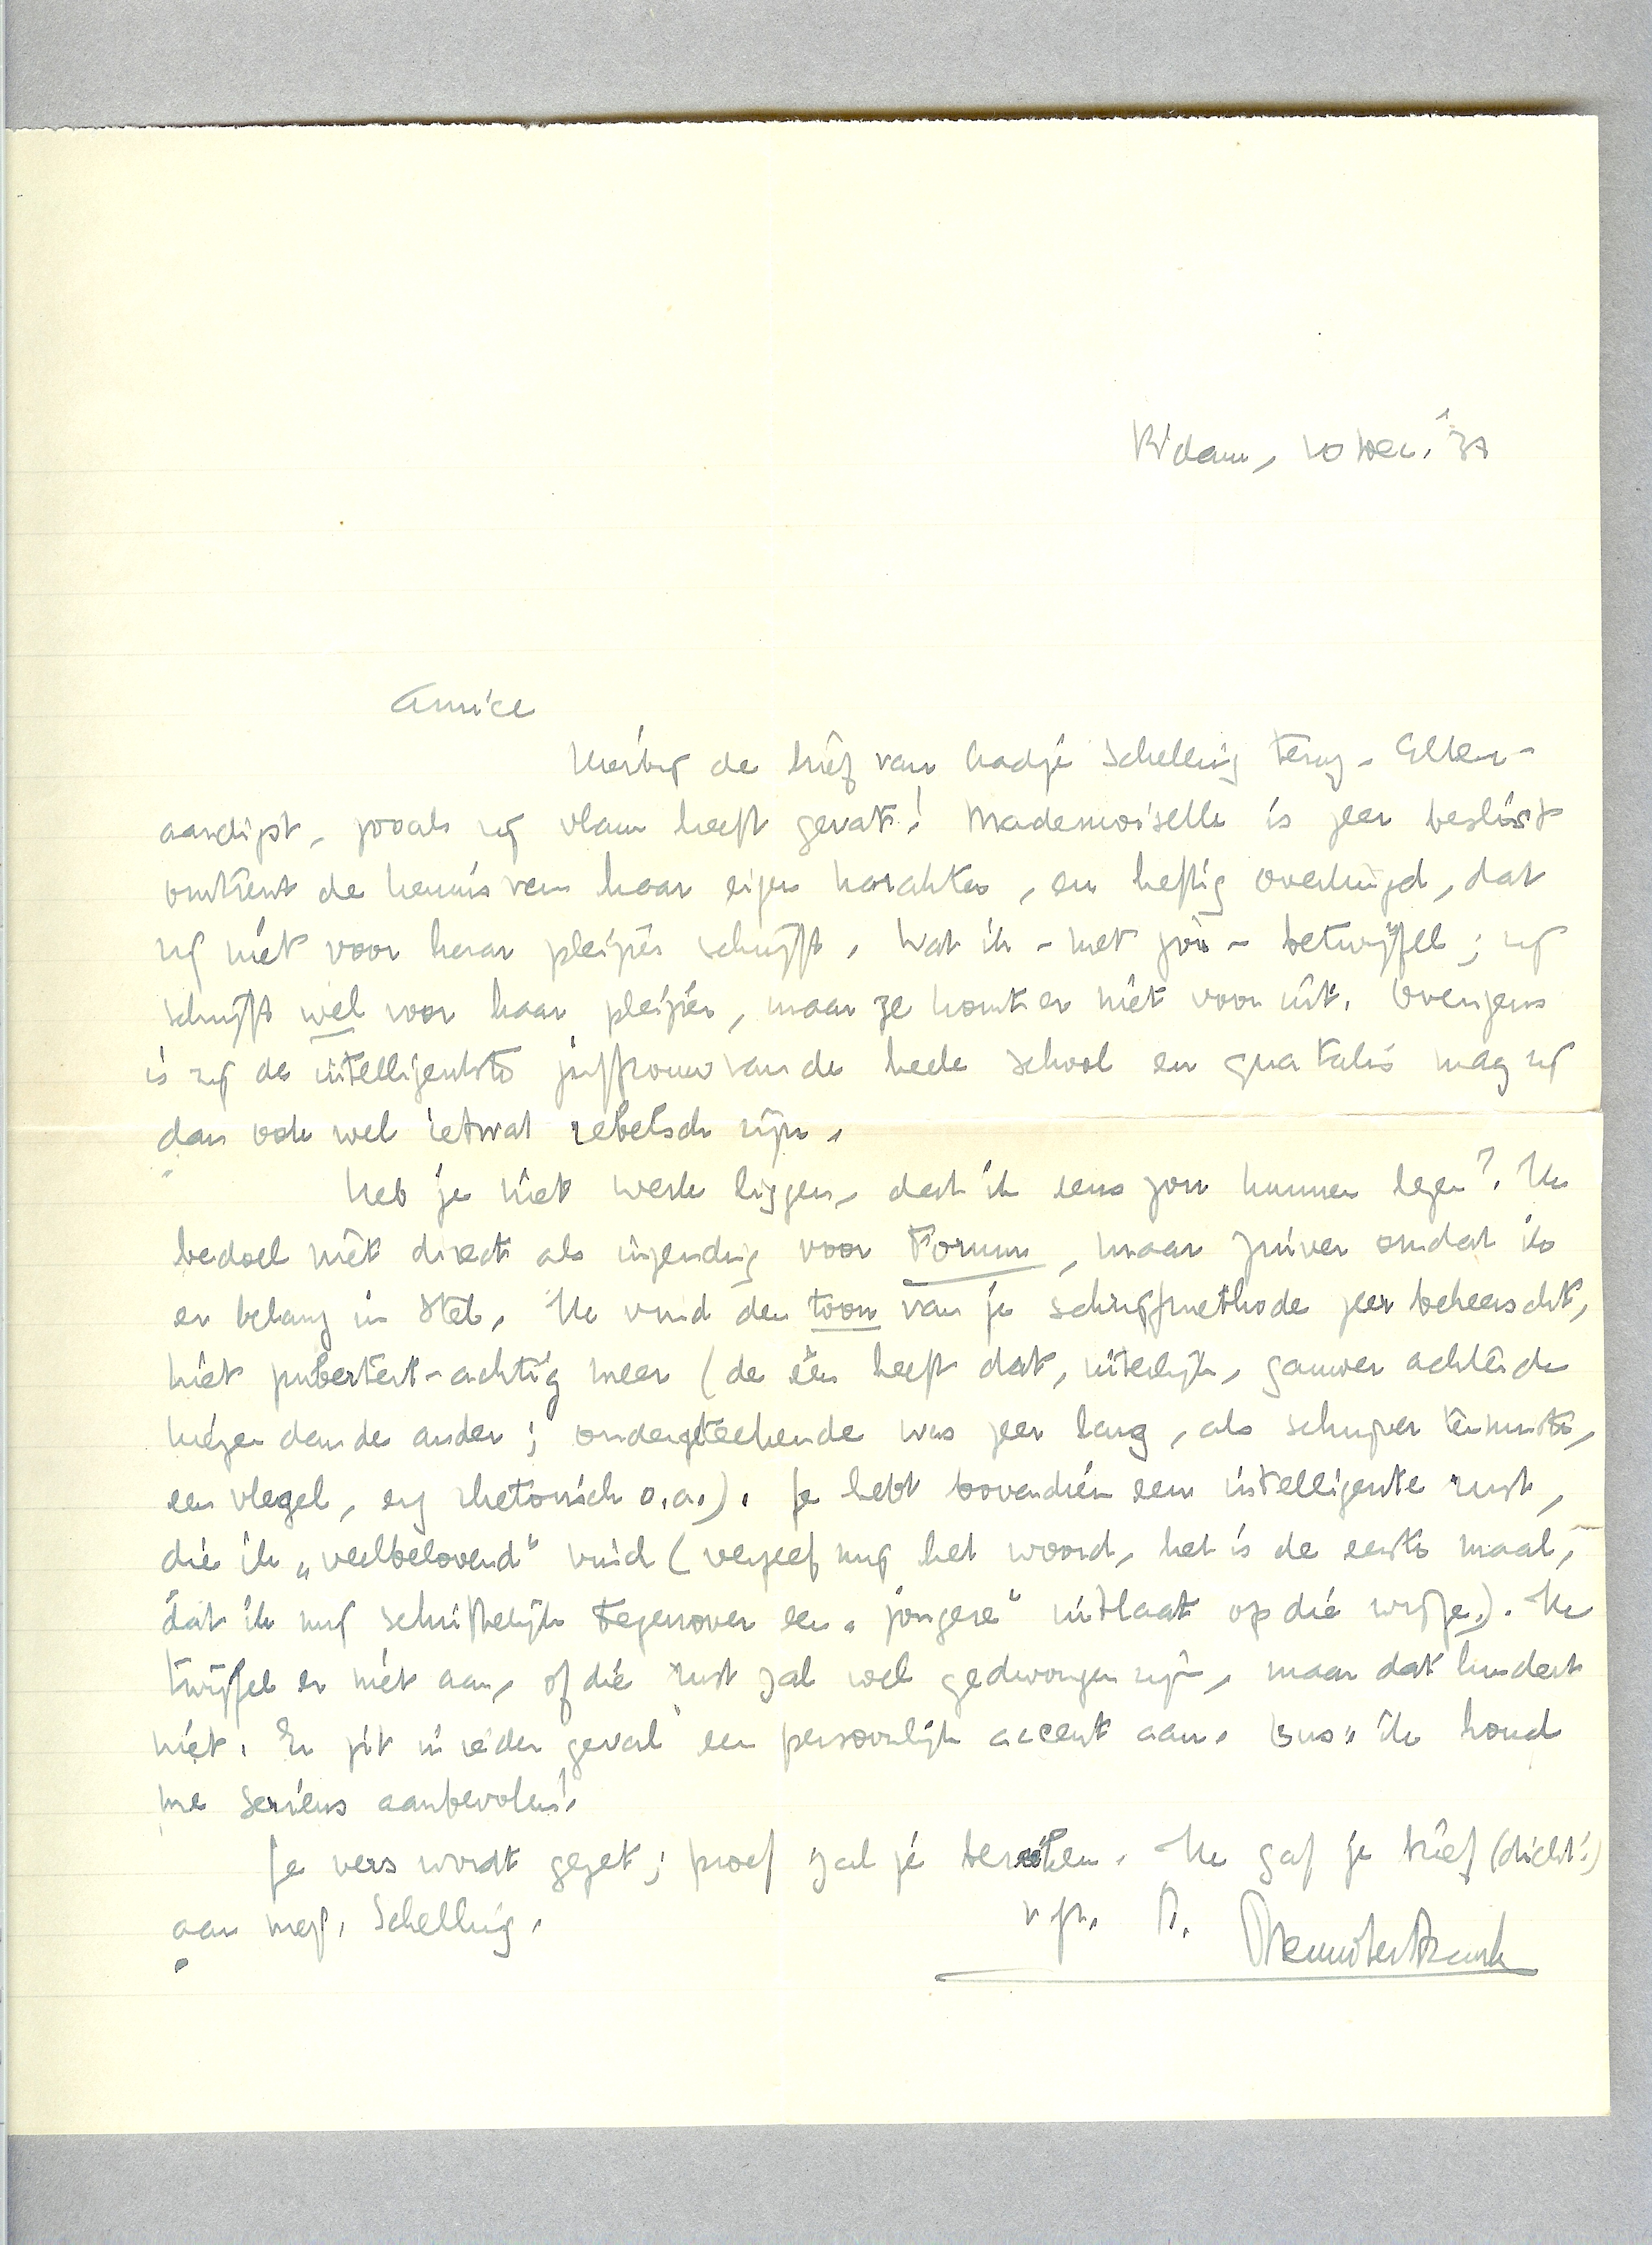 R'dam, 10 Dec. '31
Amice
Hierbij de brief van Hadje Schelling terug. Aller-
aardigst, zooals zij vlam heeft gevat! Mademoiselle is zeer beslist
omtrent de kennis van haar eigen karakter, en heftig overtuigd, dat
zij niet voor haar pleizier schrijft. Wat ik - met jou - betwijfel; zij
schrijft wel voor haar pleizier, maar ze komt er niet voor uit. Overigens
is zij de intelligentste juffrouw van de heele school en qua talis mag zij
dan ook wel ietwat rebelsch zijn.
Heb je niet werk liggen, dat ik eens zou kunnen lezen? Ik
bedoel niet direct als inzending voor Forum, maar zuiver omdat ik
er belang in stel. Ik vind den toon van je schrijfmethode zeer beheerscht,
niet puberteit-achtig meer (de één heeft dat, uiterlijk, gauwer achter de
kiezen dan de ander; ondergeteekende was zeer lang, als schrijver tenminste,
een vlegel, erg rhetorisch o.a.). Je hebt bovendien een intelligente rust,
die ik „veelbelovend" vind (vergeef mij het woord, het is de eerste maal,
dat ik mij schriftelijk tegenover een „jongere" uitlaat op die wijze.). Ik
twijfel er niet aan, of die rust zal wel gedwongen zijn, maar dat hindert
niet. Er zit in ieder geval een persoonlijk accent aan. Dus: ik houd
me serieus aanbevolen!
Je vers wordt gezet; proef zal je bereiken. Ik gaf je brief (dicht!)
aan mej. Schelling.
v.gr. t.t. Menno ter Braak